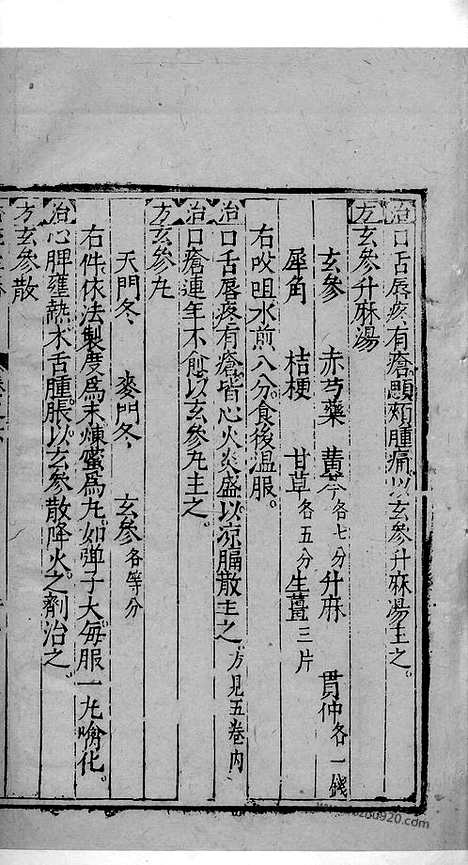 治口舌唇疼有瘡顋頰腫痛以玄參升麻湯主之。
方玄參升麻湯
玄參 赤芍藥 黄芩各七分 升麻 貫仲各一錢
犀角 桔梗 甘草各五分 生薑三片
右㕮咀水煎八分食後温服。
治口舌唇疼有瘡。皆心火炎盛以凉膈散主之。方見五卷內
治口瘡連年不愈以玄參丸主之。
方玄參丸
天門冬 麥門冬 玄參各等分
右件依法製度為末煉蜜為丸。如弹子大每服一丸噙化。
治心脾壅熱木舌腫脹以玄參散降火之劑治之
方玄參散